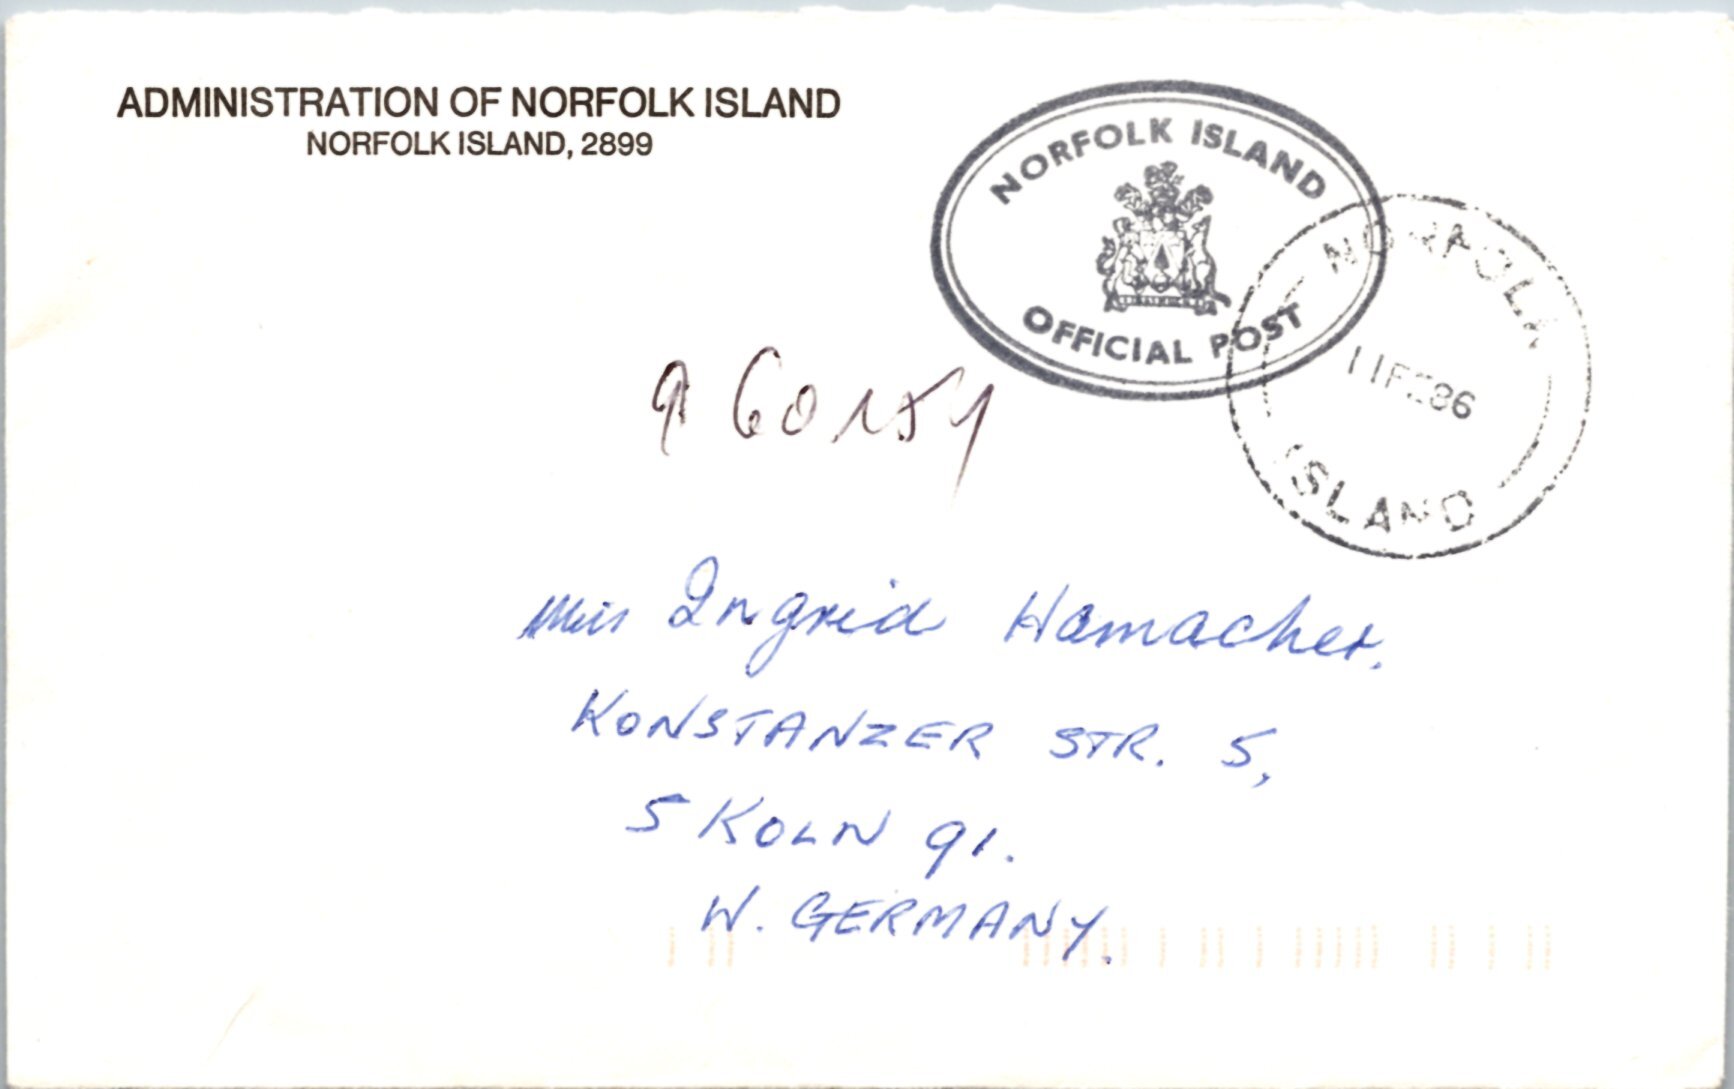 ADMINISTRATION OF NORFOLK ISLAND
NORFOLK ISLAND, 2899
NORFOLK ISLAND
OFFICIAL POST
NORFOLK
11 FE 86
ISLAND
Miss Ingrid Hamacher.
KONSTANZER STR. 5,
5 KOLN 91.
W. GERMANY.